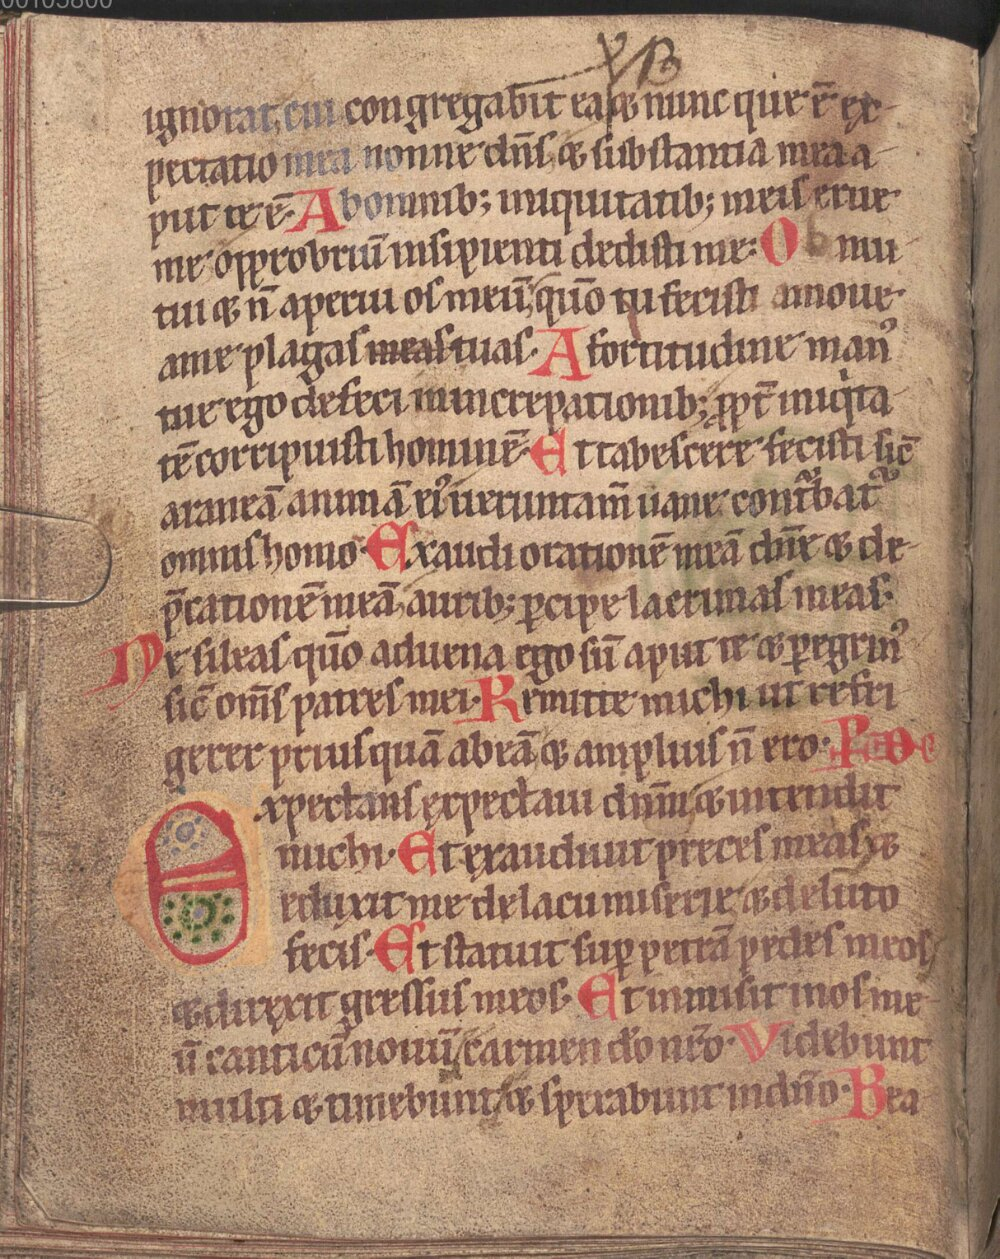 00105800
xB
ignorat cui congregabit ea. & nunc que ē ex-
pectatio mea nonne dn̄s & substantia mea a-
put te ē. Ab omnib; iniquitatib; meis erue
me opprobriū insipienti dedisti me: Ob mu
tui & n̄ aperui os meū, qūo tu fecisti amoue
a me plagas meas tuas. A fortitudine manꝰ
tue ego defeci in increpationib; ꝓpt̄ iniqita
tē corripuisti hominē. Et tabescere fecisti sic̄
araneā animā eiꝰ ueruntam̄ uane cont̾batᷣ
omnis homo. Exaudi orationē meā dn̄e & de-
p̄cationē meā, aurib; ꝑcipe lacrimas meas.
Ne sileas qūo aduena ego sū aput te & ꝑegrinꝰ
sic̄ om̄s patres mei. Remitte michi ut refri
gerer prius quā abeā & amplius n̄ ero.
Expectans expectaui dn̄m & intendit
michi. Et exaudiuit preces meas &
eduxit me de lacu miserie & de luto
fecis. Et statuit suꝑ petrā pedes meos
& direxit gressus meos. Et inmisit in os me-
ū canticū nouū carmen dō nr̄o. Videbunt
multi & timebunt, & sperabunt in dn̄o. Bea